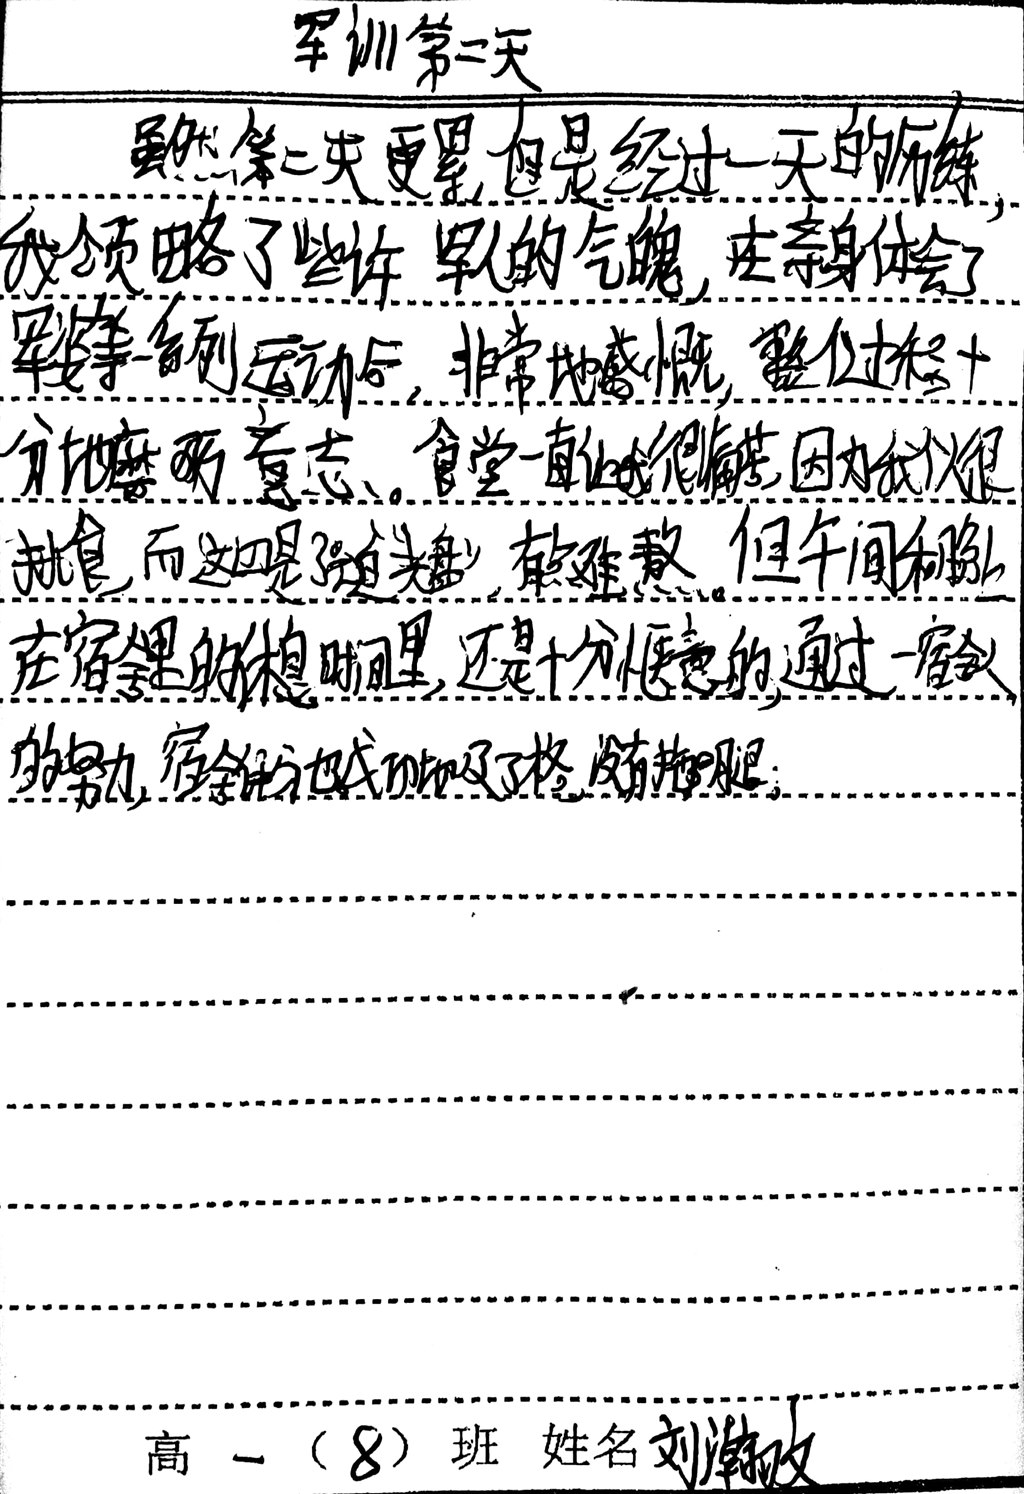 军训第二天
虽然第二天更累,但是经过一天的历练,
我领略了些许军人的气魄,在亲身体会了
军姿等一系列运动后,非常地感慨,整个过程十
分地磨砺意志。食堂一直让我很痛苦,因为我以很
挑食,而这四见了逼头盘,有些难熬。但午间和晚上
在宿舍里的休息时间里,还是十分惬意的,通过一宿舍人
的努力,宿舍部分也成功地及了格,没有拖后腿;
高一(8)班 姓名刘瀚